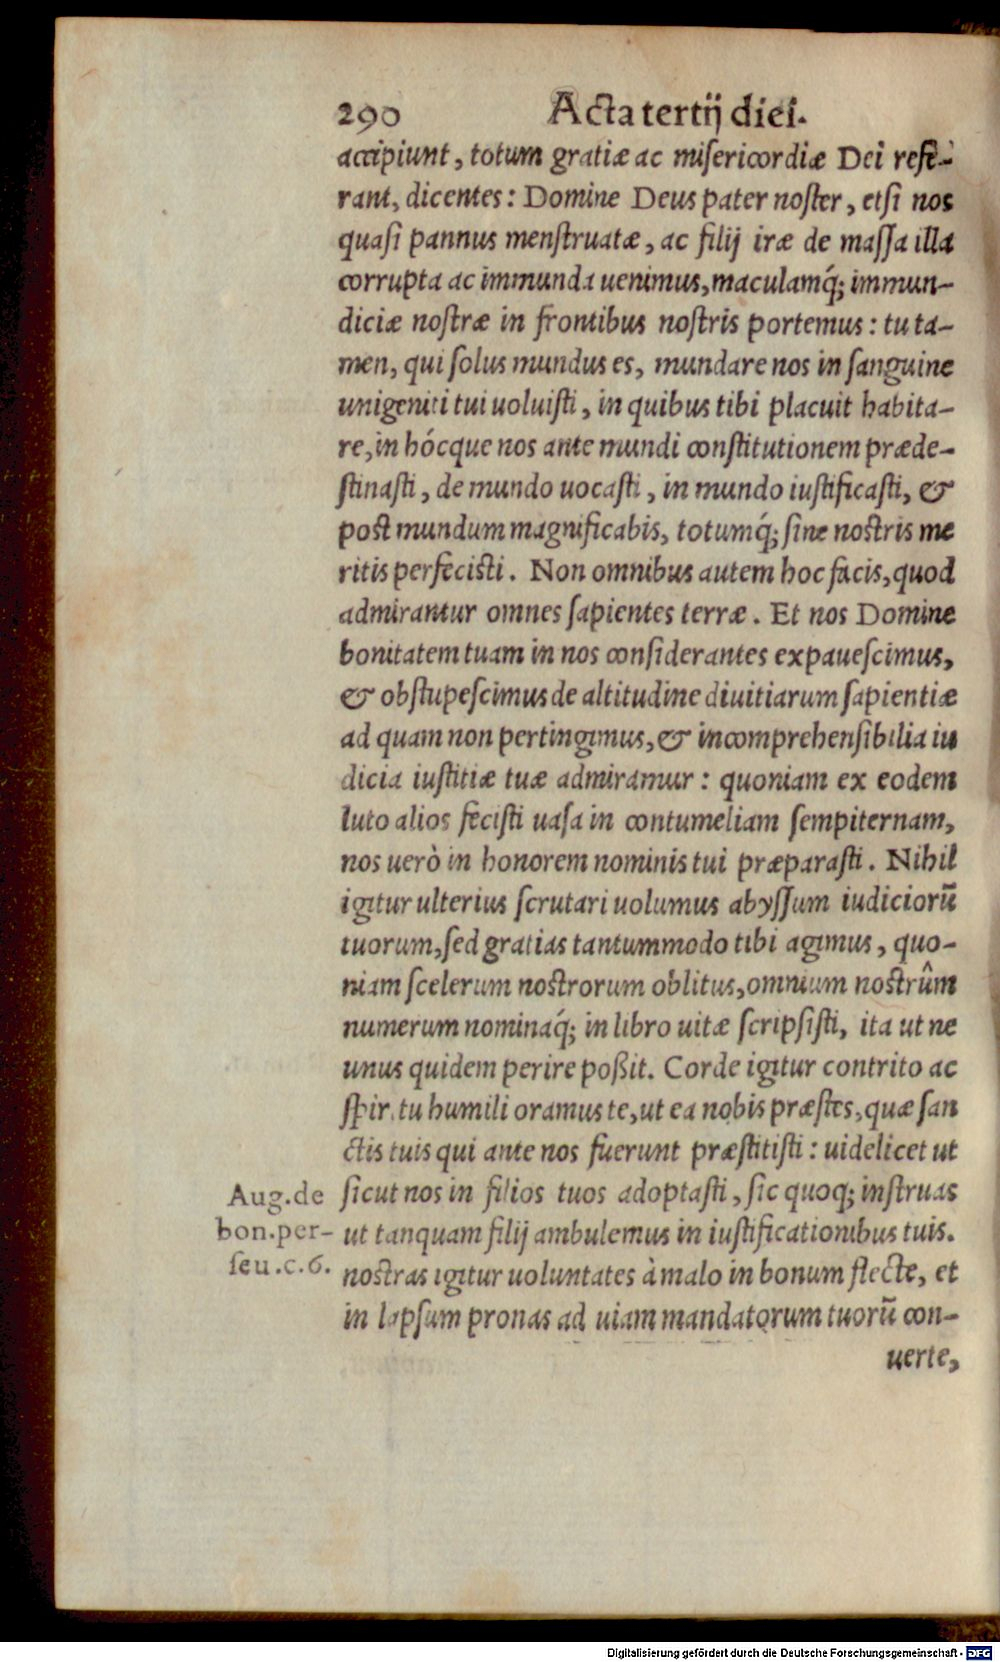 290 Acta tertij diei.
accipiunt, totum gratiæ ac misericordiæ Dei refe-
rant, dicentes: Domine Deus pater noster, etsi nos
quasi pannus menstruatæ, ac filij iræ de massa illa
corrupta ac immunda uenimus, maculamq́; immun-
diciæ nostræ in frontibus nostris portemus: tu ta-
men, qui solus mundus es, mundare nos in sanguine
unigeniti tui uoluisti, in quibus tibi placuit habita-
re, in hócque nos ante mundi constitutionem præde-
stinasti, de mundo uocasti, in mundo iustificasti, &
post mundum magnificabis, totumq́; sine nostris me
ritis perfecisti. Non omnibus autem hoc facis, quod
admirantur omnes sapientes terræ. Et nos Domine
bonitatem tuam in nos considerantes expauescimus,
& obstupescimus de altitudine diuitiarum sapientiæ
ad quam non pertingimus, & incomprehensibilia iu
dicia iustitiæ tuæ admiramur: quoniam ex eodem
luto alios fecisti uasa in contumeliam sempiternam,
nos uerò in honorem nominis tui præparasti. Nihil
igitur ulterius scrutari uolumus abyssum iudiciorū
tuorum, sed gratias tantummodo tibi agimus, quo-
niam scelerum nostrorum oblitus, omnium nostrûm
numerum nominaq́; in libro uitæ scripsisti, ita ut ne
unus quidem perire poßit. Corde igitur contrito ac
spiritu humili oramus te, ut ea nobis præstes, quæ san
ctis tuis qui ante nos fuerunt præstitisti: uidelicet ut
sicut nos in filios tuos adoptasti, sic quoq; instruas
ut tanquam filij ambulemus in iustificationibus tuis.
nostras igitur uoluntates à malo in bonum flecte, et
in lapsum pronas ad uiam mandatorum tuorū con-
uerte,
Aug. de
bon. per-
seu. c. 6.
Digitalisierung gefördert durch die Deutsche Forschungsgemeinschaft - DFG